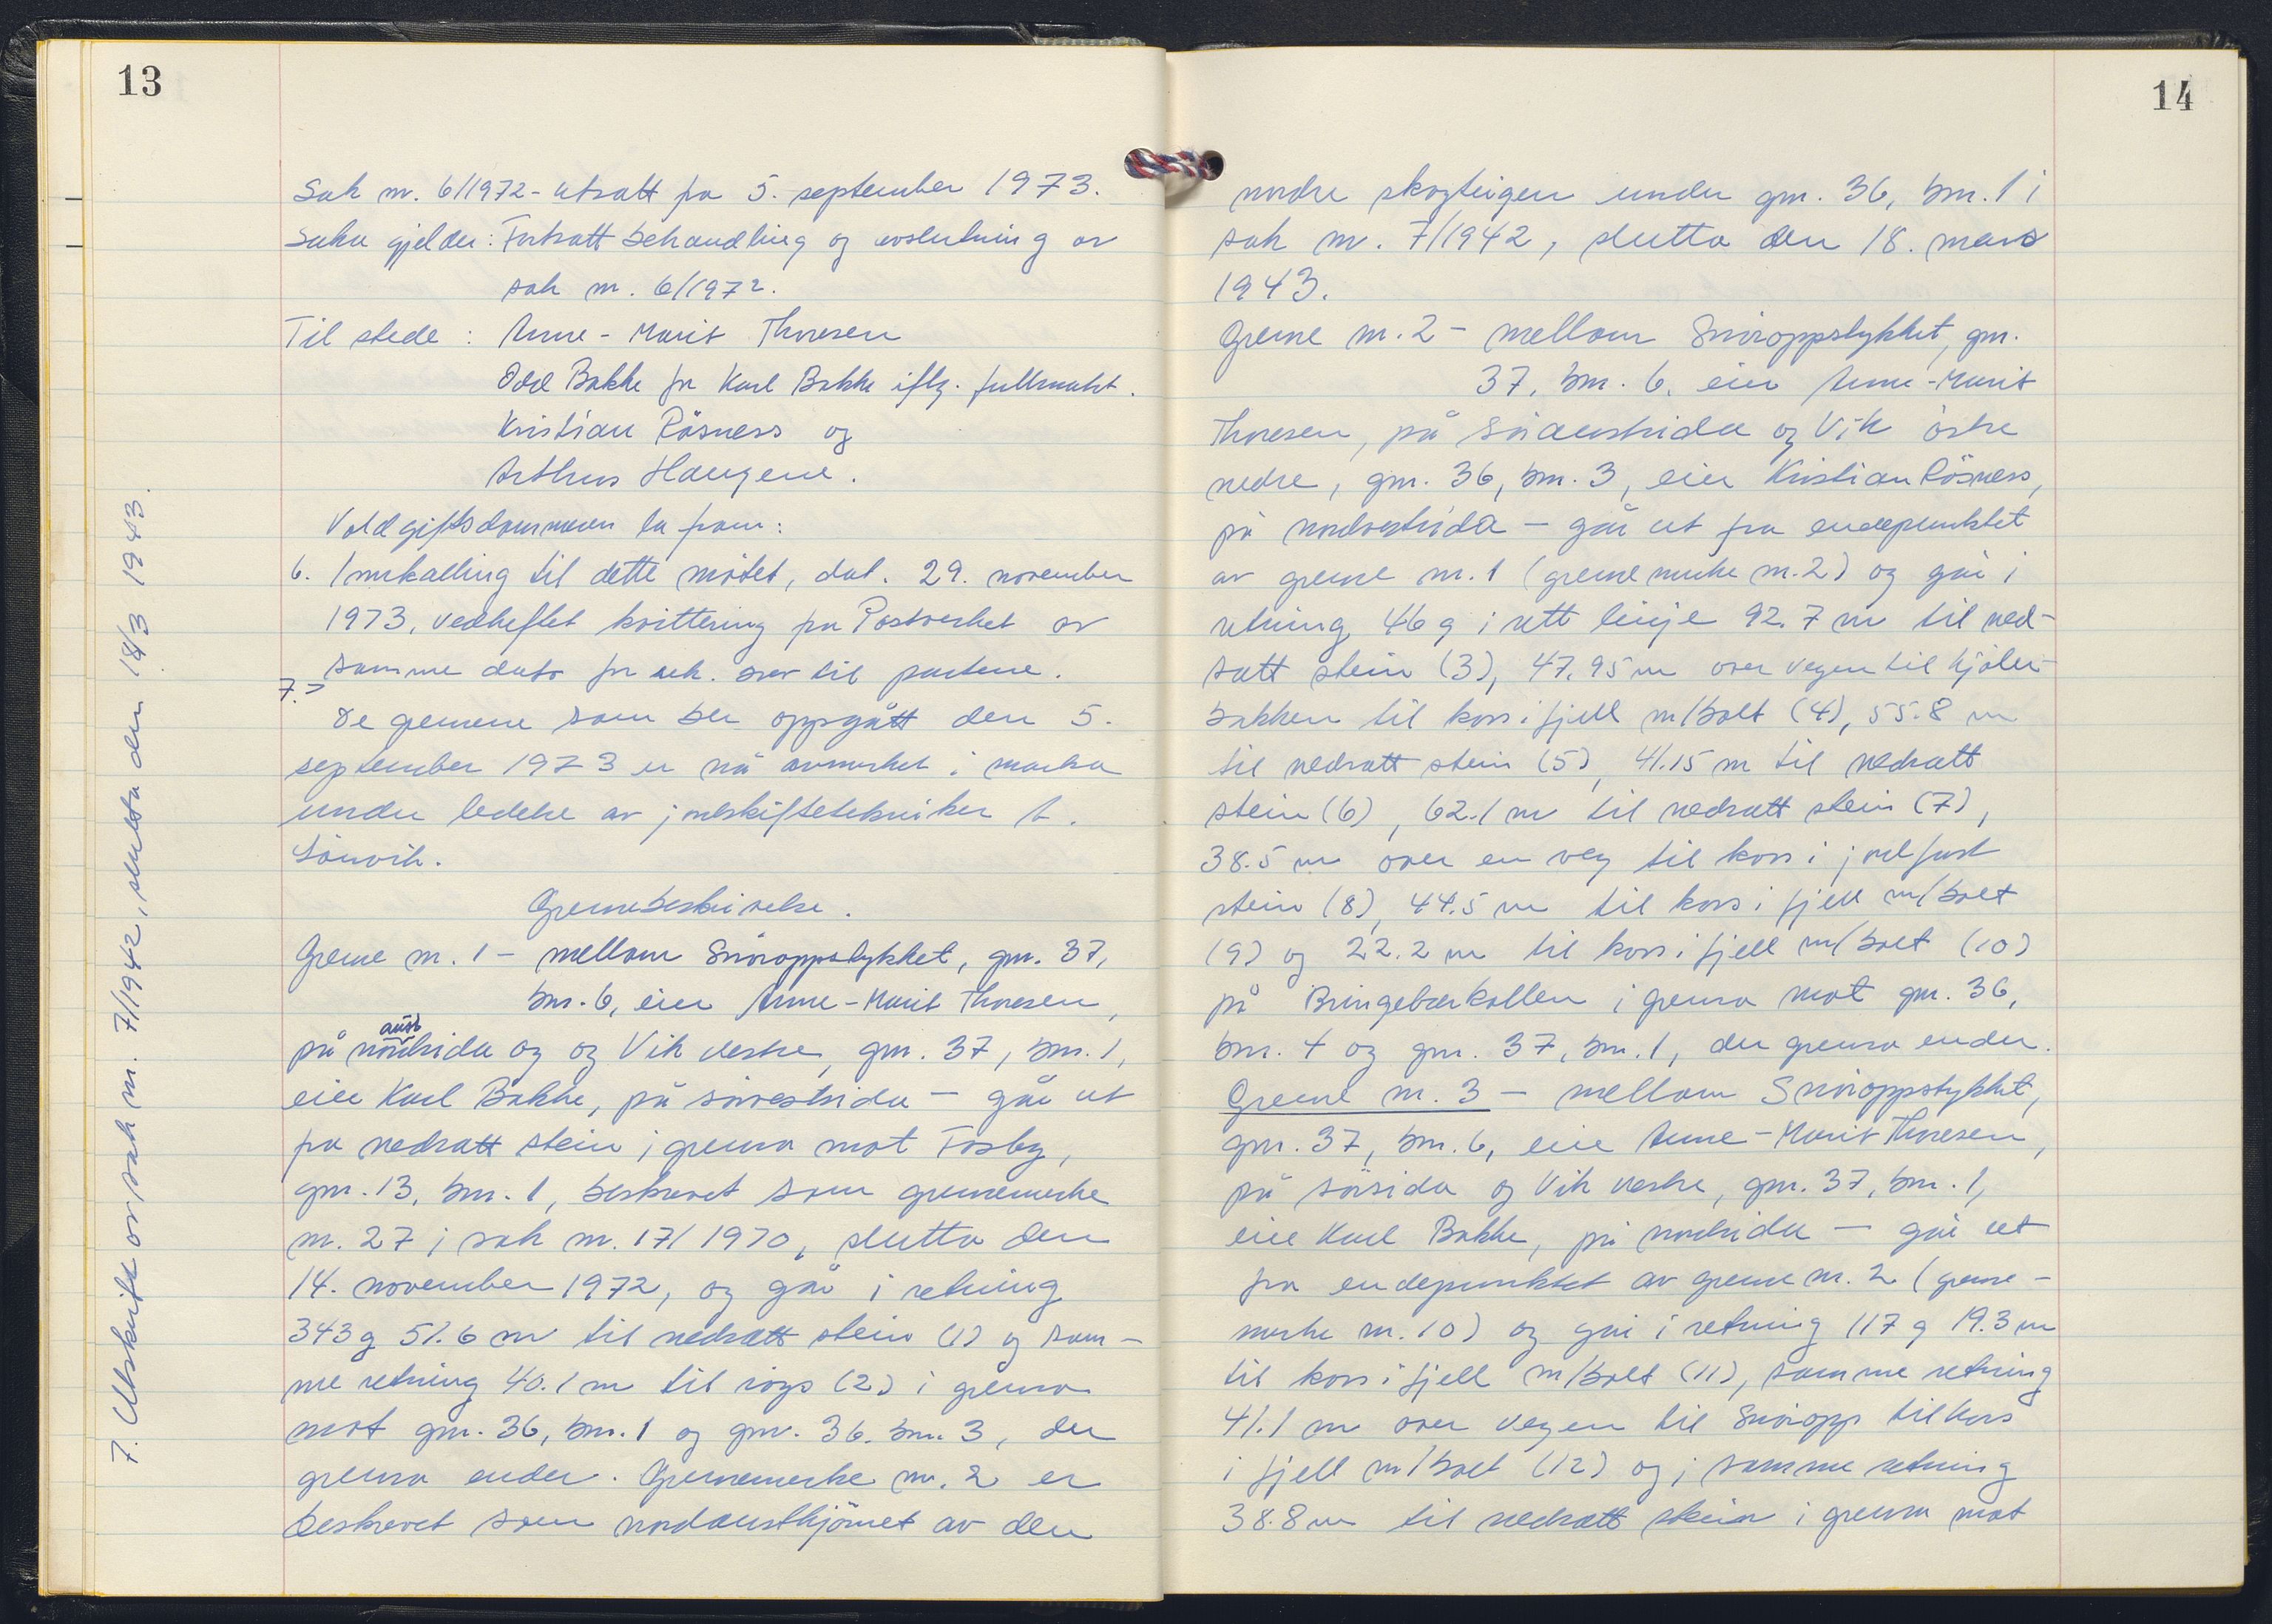 13
Sak nr. 6/1972 - utsatt fra 5. september 1973.
Saka gjelder: Fortsatt behandling og avslutning av
sak nr. 6/1972.
Til stede: Anne-Marit Thoresen
Odd Bakke for Karl Bakke iflg. fullmakt.
Kristian Rösness og
Arthur Haugene.
Voldgiftsdommeren la fram:
6. Innkalling til dette mötet, dat. 29. november
1973, vedheftet kvittering fra Postverket av
samme dato for rek. brev til partene.
7. >
De grensene som ble oppgått den 5.
september 1973 er nå avmerket i marka
under ledelse av jordskiftetekniker A.
Sönvik.
Grensebeskrivelse.
Grense nr. 1 - mellom Snöroppstykket, gnr. 37,
bnr. 6, eier Anne-Marit Thoresen,
aust
på nordsida og og Vik vestre, gnr. 37, bnr. 1,
eier Karl Bakke, på sörvestsida - går ut
fra nedsatt stein i grensa mot Fosby,
gnr. 13, bnr. 1, beskrevet som grensemerke
nr. 27 i sak nr. 17/1970, slutta den
14. november 1972, og går i retning
343 g 51.6 m til nedsatt stein (1) og sam-
me retning 40.1 m til röys (2) i grensa
mot gnr. 36, bnr. 1 og gnr. 36. bnr. 3, der
grensa ender. Grensemerke nr. 2 er
beskrevet som nordausthjörnet av den
7. Utskrift av sak nr. 7/1942, slutta den 18/3 1943.
14
nordre skogteigen under gnr. 36, bnr. 1 i
sak nr. 7/1942, slutta den 18. mars
1943.
Grense nr. 2 - mellom Snöroppstykket, gnr.
37, bnr. 6. eier Anne-Marit
Thoresen, på söraustsida og Vik östre
nedre, gnr. 36, bnr. 3, eier Kristian Rösness,
på nordvestsida - går ut fra endepunktet
av grense nr. 1 (grensemerke nr. 2) og går i
retning 46 g i rett linje 92.7 m til ned-
satt stein (3), 47.95 m over vegen til Kjöler-
bakken til kors i fjell m/bolt (4), 55.8 m
til nedsatt stein (5), 41.15 m til nedsatt
stein (6), 62.1 m til nedsatt stein (7),
38.5 m over en veg til kors i jordfast
stein (8), 44.5 m til kors i fjell m/bolt
(9) og 22.2 m til kors i fjell m/bolt (10)
på Bringebærkollen i grensa mot gnr. 36,
bnr. 4 og gnr. 37, bnr. 1, der grensa ender.
Grense nr. 3 - mellom Snöroppstykket,
gnr. 37, bnr. 6, eier Anne-Marit Thoresen,
på sörsida og Vik vestre, gnr. 37, bnr. 1,
eier Karl Bakke, på nordsida - går ut
fra endepunktet av grense nr. 2 (grense-
merke nr. 10) og går i retning 117 g 19.3 m
til kors i fjell m/bolt (11), samme retning
41.1 m over vegen til Snöropp til kors
i fjell m/bolt (12) og i samme retning
38.8 m til nedsatt stein i grensa mot